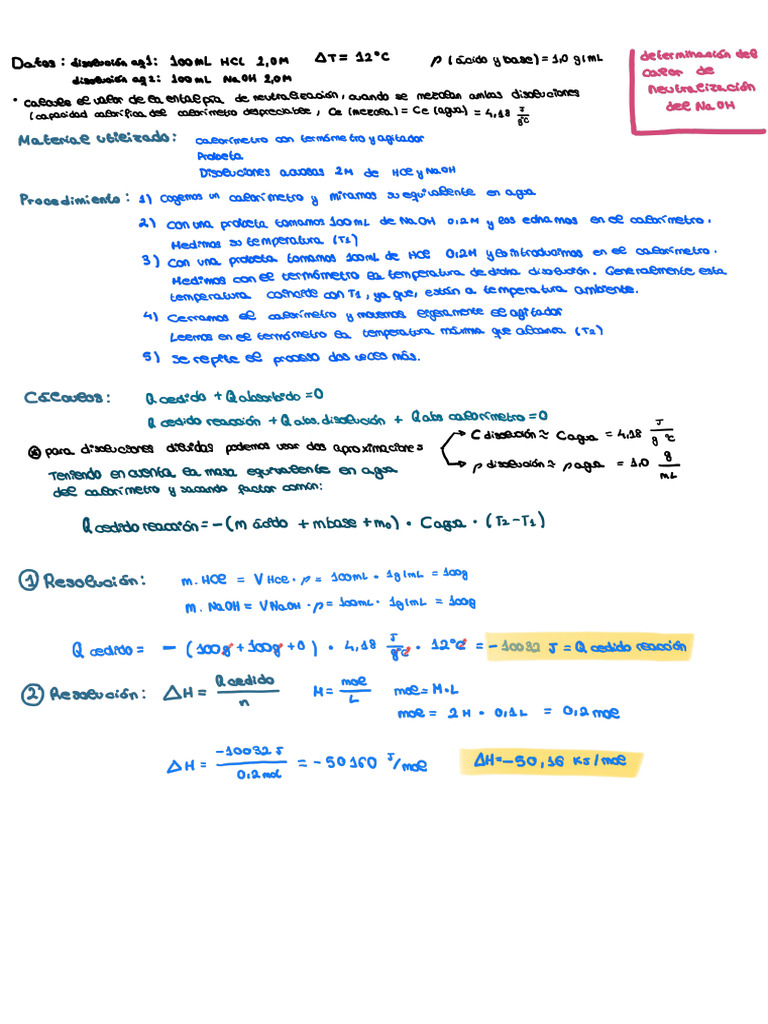 Datos: disolución aq1: 100mL HCl 2,0M ΔT= 12°C ρ (ácido y base)=1,0 g/mL
disolución aq2: 100mL NaOH 2,0M
determinación del
calor de
neutralización
del NaOH
• calcula el valor de la entalpía de neutralización, cuando se mezclan ambas disoluciones
(capacidad calorífica del calorímetro despreciable, Ce (mezcla) = Ce (agua) = 4,18 J/g°C
Material utilizado: calorímetro con termómetro y agitador
Probeta
Disoluciones acuosas 2M de HCl y NaOH
Procedimiento: 1) Cogemos un calorímetro y miramos su equivalente en agua
2) Con una probeta tomamos 100mL de NaOH 0,2M y los echamos en el calorímetro.
Medimos su temperatura (T1)
3) Con una probeta tomamos 100mL de HCl 0,2M y lo introducimos en el calorímetro.
Medimos con el termómetro la temperatura de dicha disolución. Generalmente esta
temperatura coincide con T1, ya que, están a temperatura ambiente.
4) Cerramos el calorímetro y movemos ligeramente el agitador
Leemos en el termómetro la temperatura máxima que alcanza (T2)
5) Se repite el proceso dos veces más.
Cálculos: Q cedido + Q absorbido = 0
Q cedido reacción + Q abs. disolución + Q abs calorímetro = 0
* para disoluciones diluidas podemos usar dos aproximaciones
C disolución ≈ C agua = 4,18 J/g °C
ρ disolución ≈ ρ agua = 1,0 g/mL
Teniendo en cuenta la masa equivalente en agua
del calorímetro y sacando factor común:
Q cedido reacción = -(m ácido + m base + m0) • C agua • (T2-T1)
① Resolución: m. HCl = V HCl • ρ = 100mL • 1g/mL = 100g
m. NaOH = V NaOH • ρ = 100mL • 1g/mL = 100g
Q cedido = - (100g + 100g + 0) • 4,18 J/g°C • 12°C = -10032 J = Q cedido reacción
② Resolución: ΔH = Q cedido/n M = mol/L mol = M•L
mol = 2M • 0,1L = 0,2 mol
ΔH = -10032 J/0,2 mol = -50160 J/mol ΔH=-50,16 KJ/mol